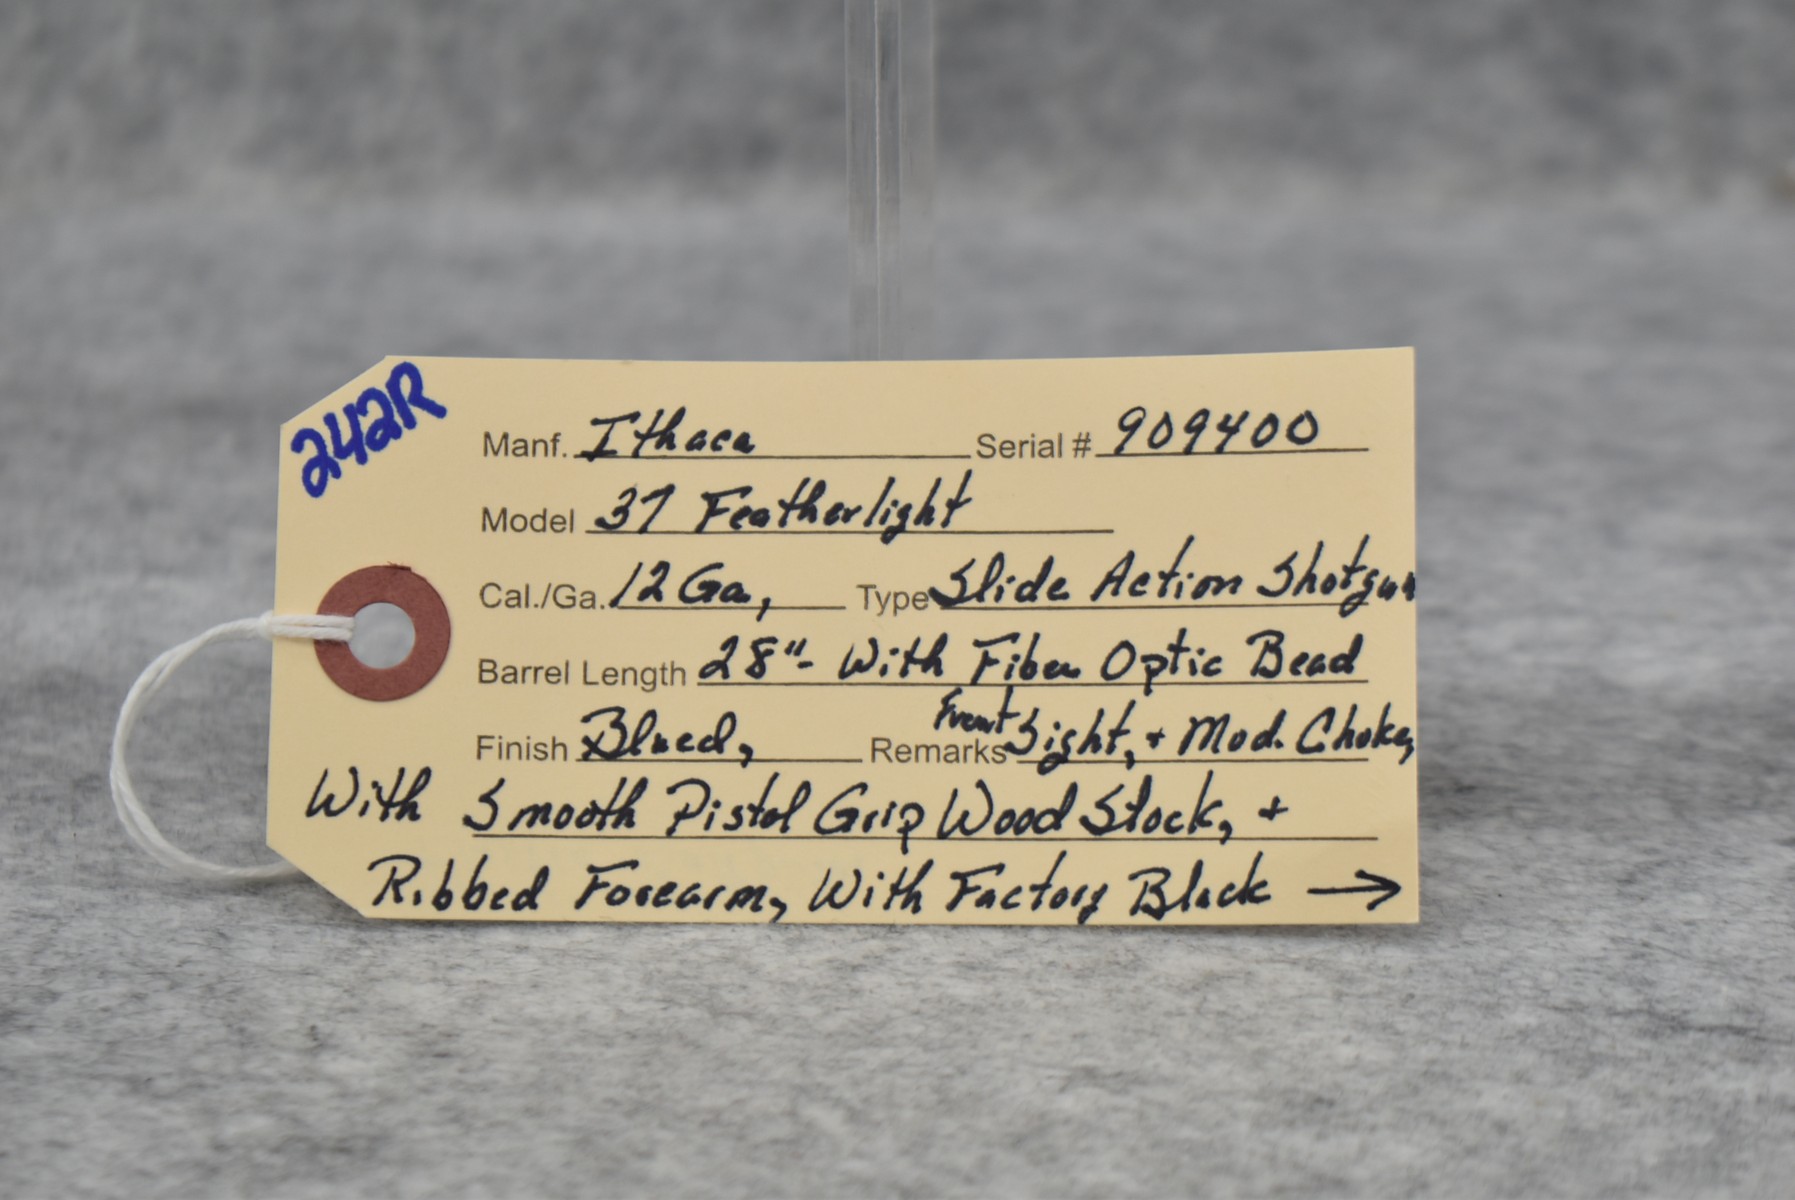 242R
Manf. Ithaca Serial # 909400
Model 37 Featherlight
Cal./Ga. 12 Ga, Type Slide Action Shotgun
Barrel Length 28"- With Fiber Optic Bead
Finish Blued, Remarks Front Sight, + Mod. Choke,
With Smooth Pistol Grip Wood Stock, +
Ribbed Forearm, With Factory Black →